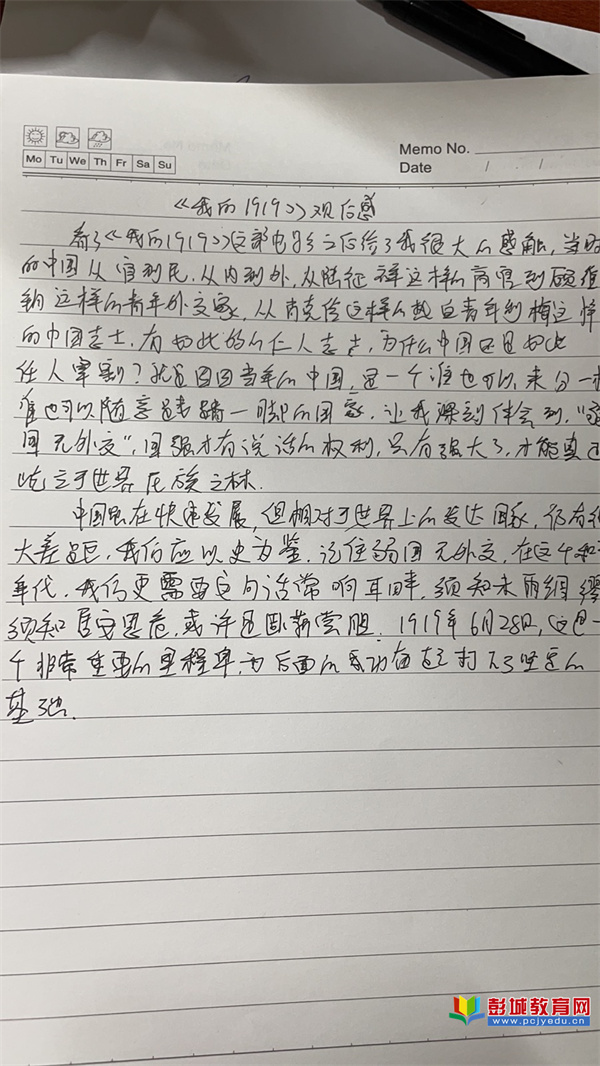 Memo No.
Mo Tu We Th Fr Sa Su
Date / /
《我的1919》观后感
看了《我的1919》这部电影之后给了我很大的感触,当时
的中国从官到民,从内到外,从陆征祥这样的高官到顾维
钧这样的青年外交家,从肖克俭这样的热血青年到梅这样
的中国志士,有如此多的仁人志士,为什么中国还是如此
任人宰割?就是因当年的中国,是一个谁也可以来分一
谁也可以随意踐踏一脚的国家,让我深刻体会到,“弱
国无外交”,国强才有说话的权利,只有强大了,才能真正
屹立于世界民族之林.
中国虽在快速发展,但相对于世界上的发达国家,仍有很
大差距,我们应以史为鉴,记住弱国无外交,在这个和平
年代,我们更需要这句话常响耳畔,须知未雨绸缪
须知居安思危,或许是卧薪尝胆.1919年6月28日,这是一
个非常重要的里程碑,为后面的成功奋起打下了坚实的
基础.
彭城教育网
www.pcjyedu.cn